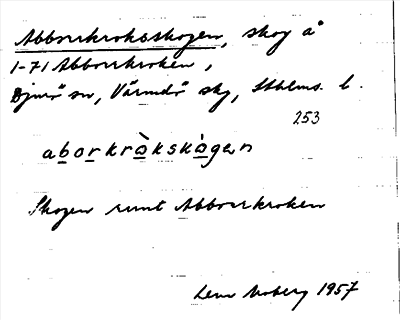 Abborrkroksskogen, skog å
1-71 Abborrkroken,
Djurö sn, Värmdö skg, Sthlms. l.
253
aborkròkskògen
Skogen runt Abborrkroken
Lena Moberg 1957